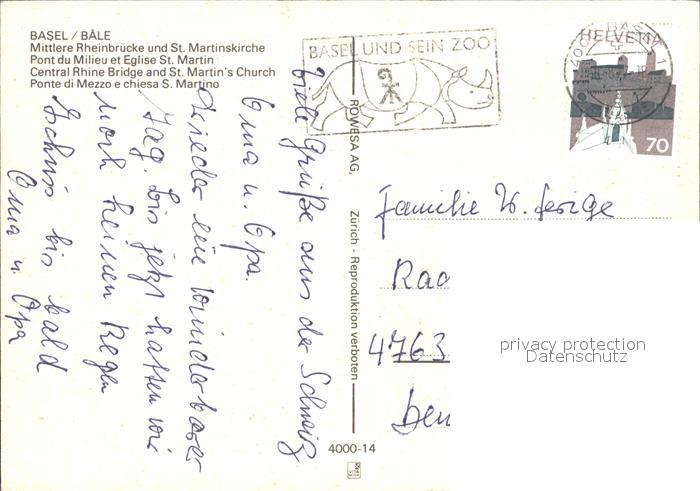 BASEL / BÂLE
Mittlere Rheinbrücke und St. Martinskirche
Pont du Milieu et Eglise St. Martin
Central Rhine Bridge and St. Martin's Church
Ponte di Mezzo e chiesa S. Martino
BASEL UND SEIN ZOO
HELVETIA
70
Viele Grüße aus der Schweiz
Oma u. Opa.
Wieder ein wunderbarer
Tag. Bis jetzt hatten wir
noch keinen Regen
Tschüss bis bald
Oma u Opa
ROWESA AG, Zürich - Reproduktion verboten
4000-14
Familie W.
Rad
4763
privacy protection
Datenschutz